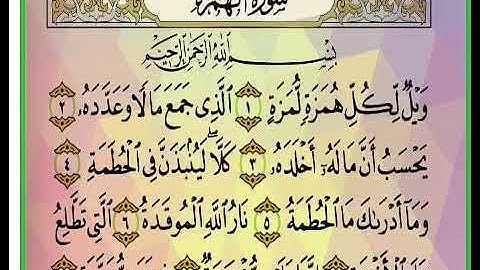 سُورَةُ الْهُمَزَةِ
بِسْمِ اللَّهِ الرَّحْمَٰنِ الرَّحِيمِ
وَيْلٌ لِّكُلِّ هُمَزَةٍ لُّمَزَةٍ ١ الَّذِى جَمَعَ مَالًا وَعَدَّدَهُۥ ٢
يَحْسَبُ أَنَّ مَالَهُۥٓ أَخْلَدَهُۥ ٣ كَلَّا ۖ لَيُنۢبَذَنَّ فِى الْحُطَمَةِ ٤
وَمَآ أَدْرَىٰكَ مَا الْحُطَمَةُ ٥ نَارُ اللَّهِ الْمُوقَدَةُ ٦ الَّتِى تَطَّلِعُ